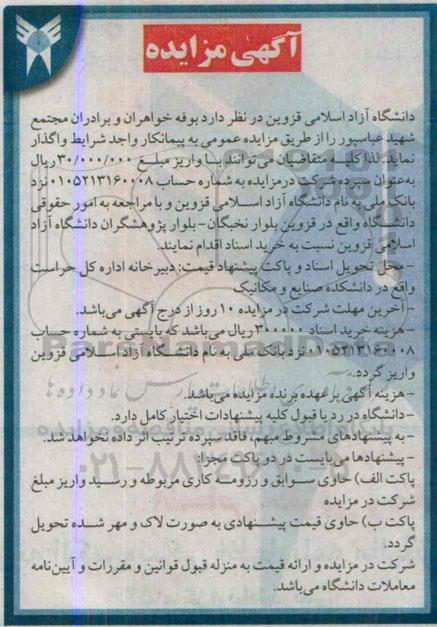 آگهی مزایده
دانشگاه آزاد اسلامی قزوین در نظر دارد بوفه خواهران و برادران مجتمع
شهید عباسپور را از طریق مزایده عمومی به پیمانکار واجد شرایط واگذار
نماید. لذا کلیه متقاضیان می‌توانند با واریز مبلغ ۳۰/۰۰۰/۰۰۰ ریال
به‌عنوان سپرده شرکت در مزایده به شماره حساب ۰۱۰۵۲۱۳۱۶۰۰۰۸ نزد
بانک ملی به نام دانشگاه آزاد اسلامی قزوین و با مراجعه به امور حقوقی
دانشگاه واقع در قزوین بلوار نخبگان - بلوار پژوهشگران دانشگاه آزاد
اسلامی قزوین نسبت به خرید اسناد اقدام نمایند.
- محل تحویل اسناد و پاکت پیشنهاد قیمت: دبیرخانه اداره کل حراست
واقع در دانشکده صنایع و مکانیک
- آخرین مهلت شرکت در مزایده ۱۰ روز از درج آگهی می‌باشد.
- هزینه خرید اسناد ۳۰۰۰۰۰ ریال می‌باشد که بایستی به شماره حساب
۰۱۰۵۲۱۳۱۶۰۰۰۸ نزد بانک ملی به نام دانشگاه آزاد اسلامی قزوین
واریز گردد.
- هزینه آگهی بر عهده برنده مزایده می‌باشد.
- دانشگاه در رد یا قبول کلیه پیشنهادات اختیار کامل دارد.
- به پیشنهادهای مشروط مبهم، فاقد سپرده ترتیب اثر داده نخواهد شد.
- پیشنهادها می‌بایست در دو پاکت مجزا:
پاکت الف) حاوی سوابق و رزومه کاری مربوطه و رسید واریز مبلغ
شرکت در مزایده
پاکت ب) حاوی قیمت پیشنهادی به صورت لاک و مهر شده تحویل
گردد.
شرکت در مزایده و ارائه قیمت به منزله قبول قوانین و مقررات و آیین‌نامه
معاملات دانشگاه می‌باشد.
ParsNamadData
۰۲۱-۸۸۳۴۹۶۷۰-۵